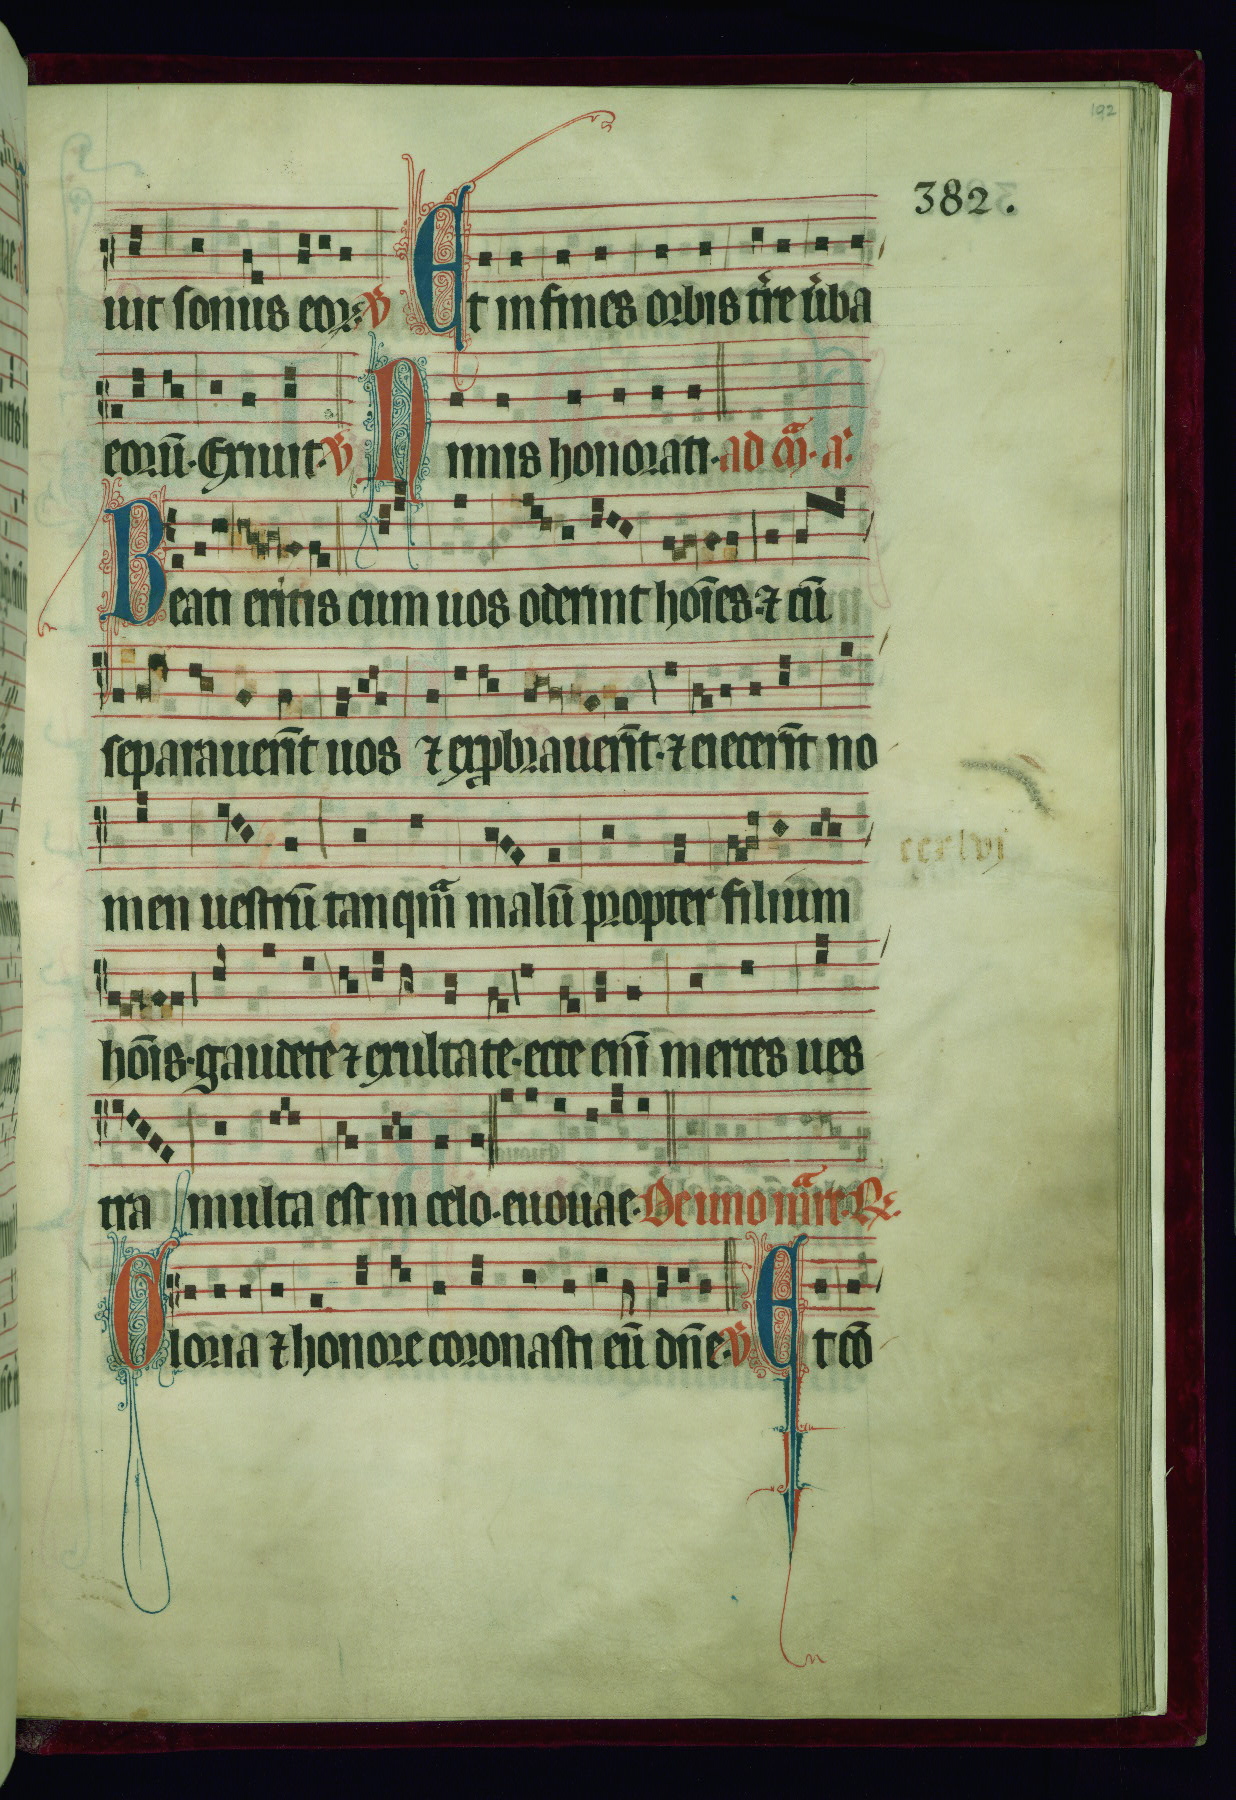 192
382.
uit sonus eoꝝ ℣ Et in fines orbis t̄re u̇ba
eorū · Exiuit · ℣ Nimis honorati · ad m̄ · a ·
Beati eritis cum uos oderint hoīes · ⁊ cū
separauerīt uos ⁊ exp̱brauerīt · ⁊ eiecerīt no
men uestrū tanqᵃm malū propter filium
hoīs · gaudete ⁊ exultate · ecce enī merces ues
tra multa est in celo · euouae · De uno mᵃre · ℟
Gloria ⁊ honore coronasti eū dn̄e · ℣ Et cō
ccxlvj